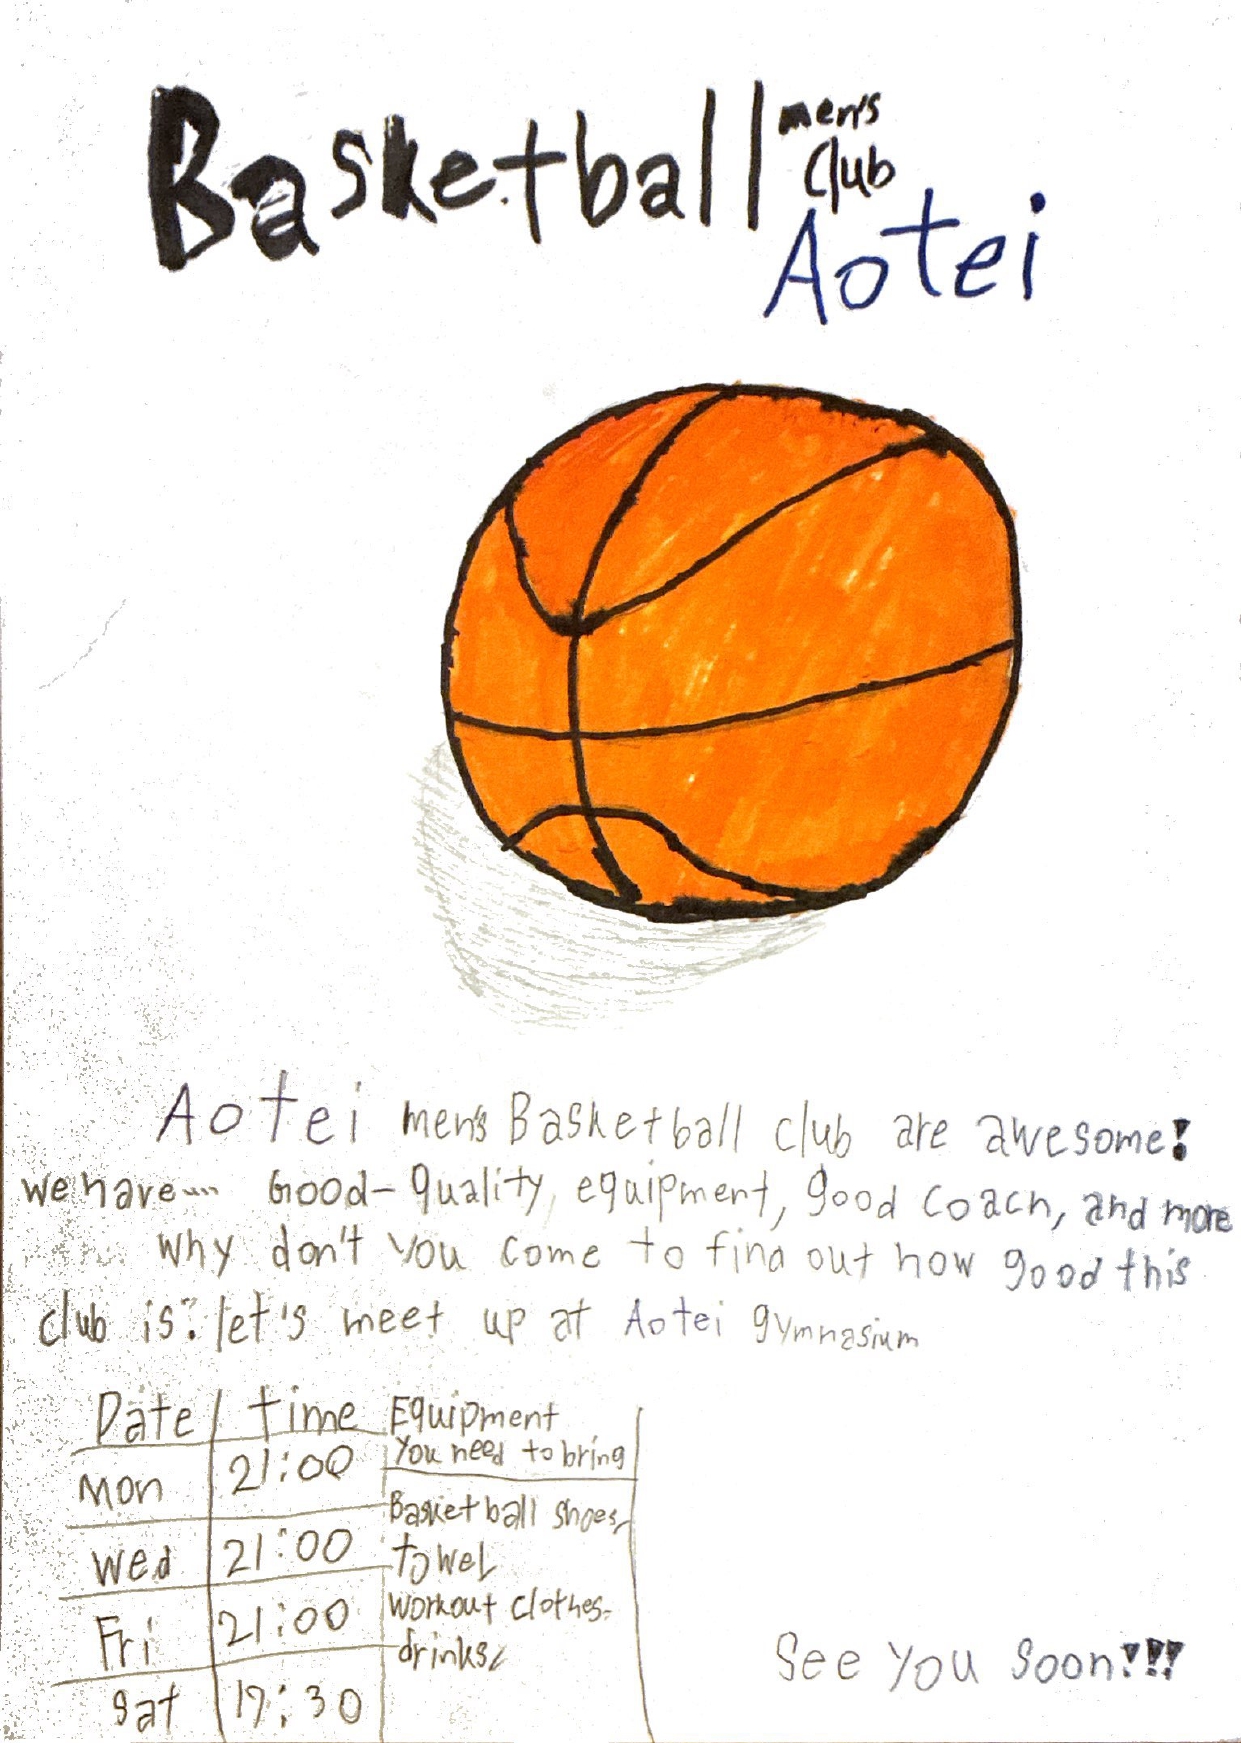 Basketball men's
club
Aotei
Aotei men's Basketball club are awesome!
we have.... Good-quality, equipment, good coach, and more
why don't you come to find out how good this
club is? let's meet up at Aotei gymnasium
Date time Equipment
you need to bring
Mon 21:00 Basketball shoes,
Wed 21:00 towel,
Fri 21:00 workout clothes,
drinks,
Sat 17:30
See you soon!!!